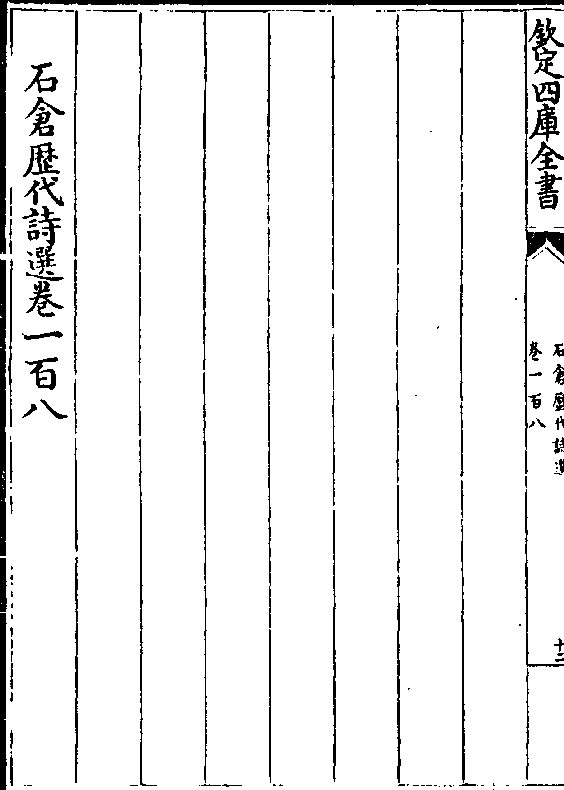 欽定四庫全書
石倉歷代詩選
卷一百八
十二
石倉歷代詩選卷一百八